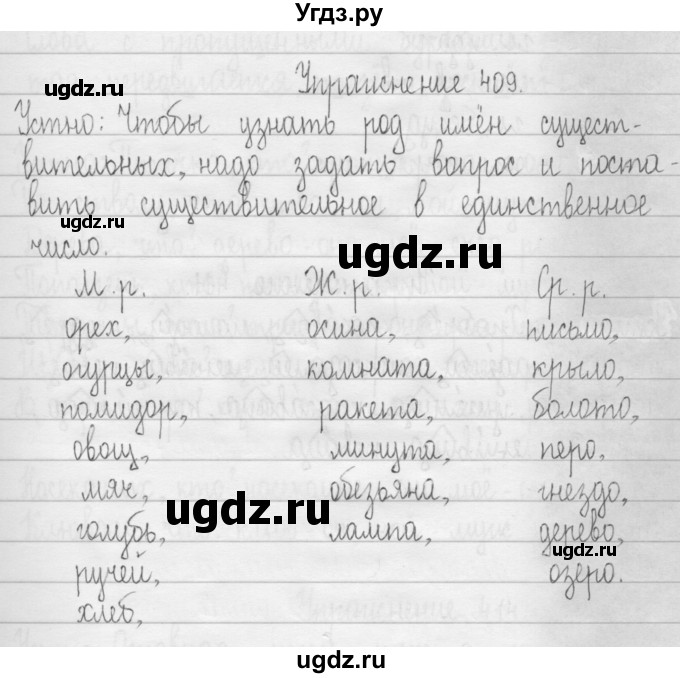 Угдз.ру
Упражнение 409.
Устно: Чтобы узнать род имён сущест-
вительных, надо задать вопрос и поста-
вить существительное в единственное
число.
М. р. Ж. р. Ср. р.
орех, осина, письмо,
огурцы, комната, крыло,
помидор, ракета, болото,
овощ, минута, перо,
мяч, обезьяна, гнездо,
голубь, лампа, дерево,
ручей, озеро.
хлеб,
ugdz.ru
ugdz.ru
ugdz.ru
ugdz.ru
ugdz.ru
ugdz.ru
ugdz.ru
ugdz.ru